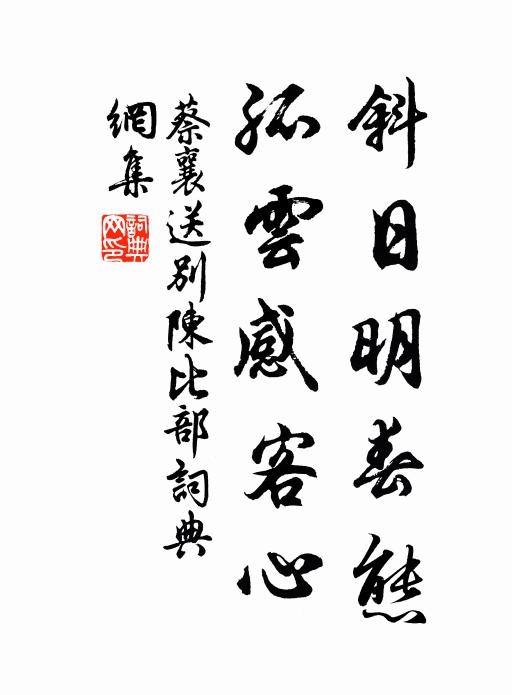 斜日明春態
孤雲感客心
蔡襄送別陳比部詞典
網集
詞典
网印